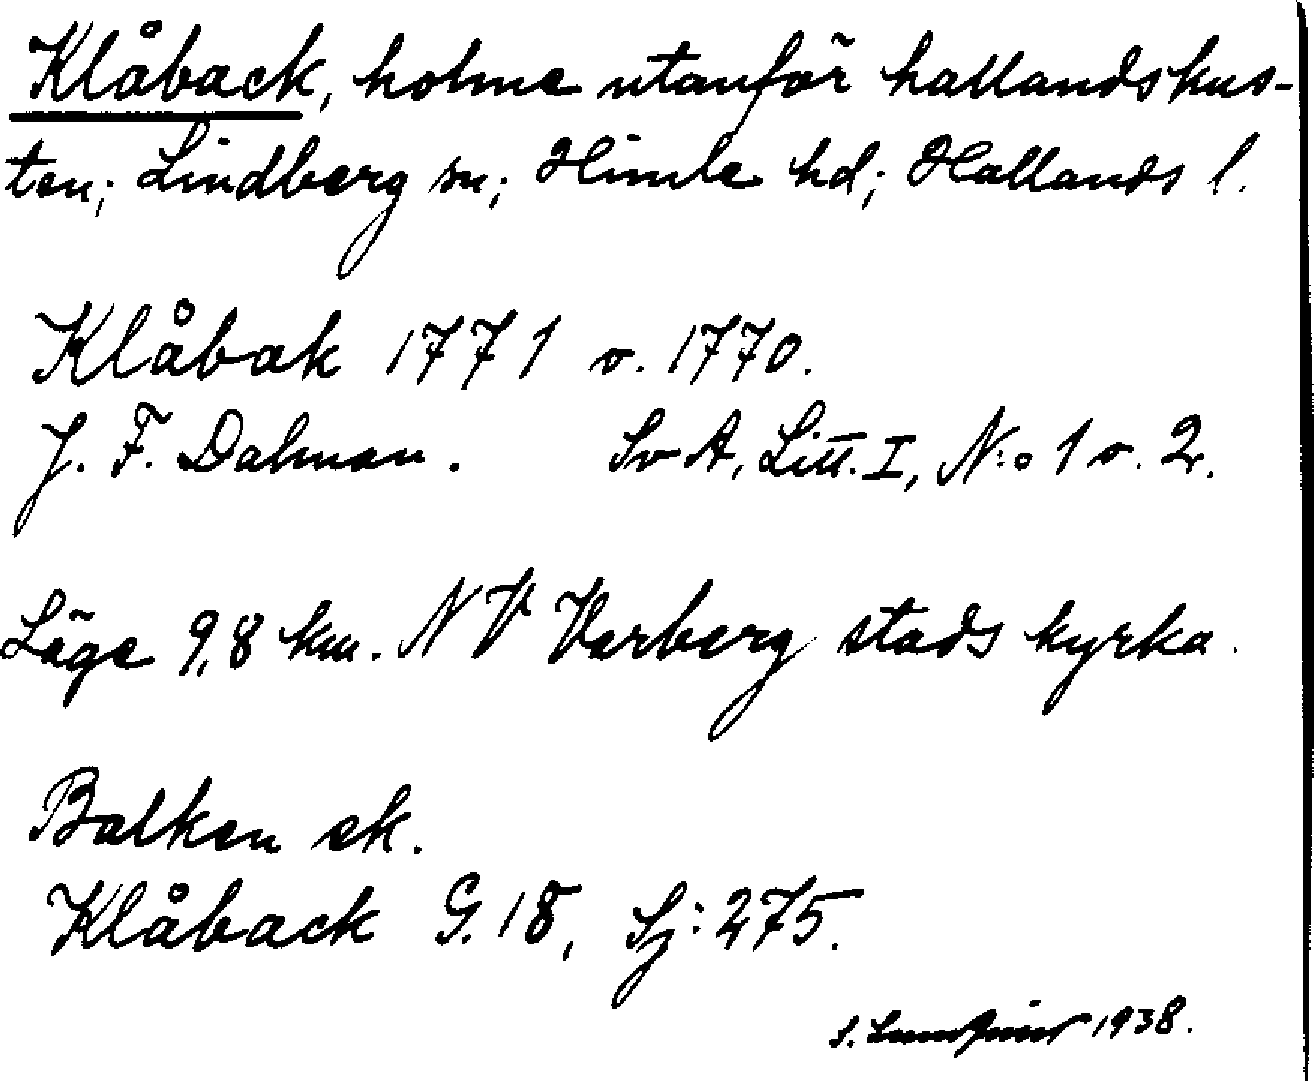 Klåback, holme utanför hallandskus-
ten; Lindberg sn; Himle hd; Hallands l.
Klåbak 1771 o. 1770.
J. F. Dalman. Sv A, Litt. I, N:o 1 o. 2.
Läge 9,8 km. NV Varberg stads kyrka.
Balken ek.
Klåback G. 18, Sj: 275.
S. 1938.